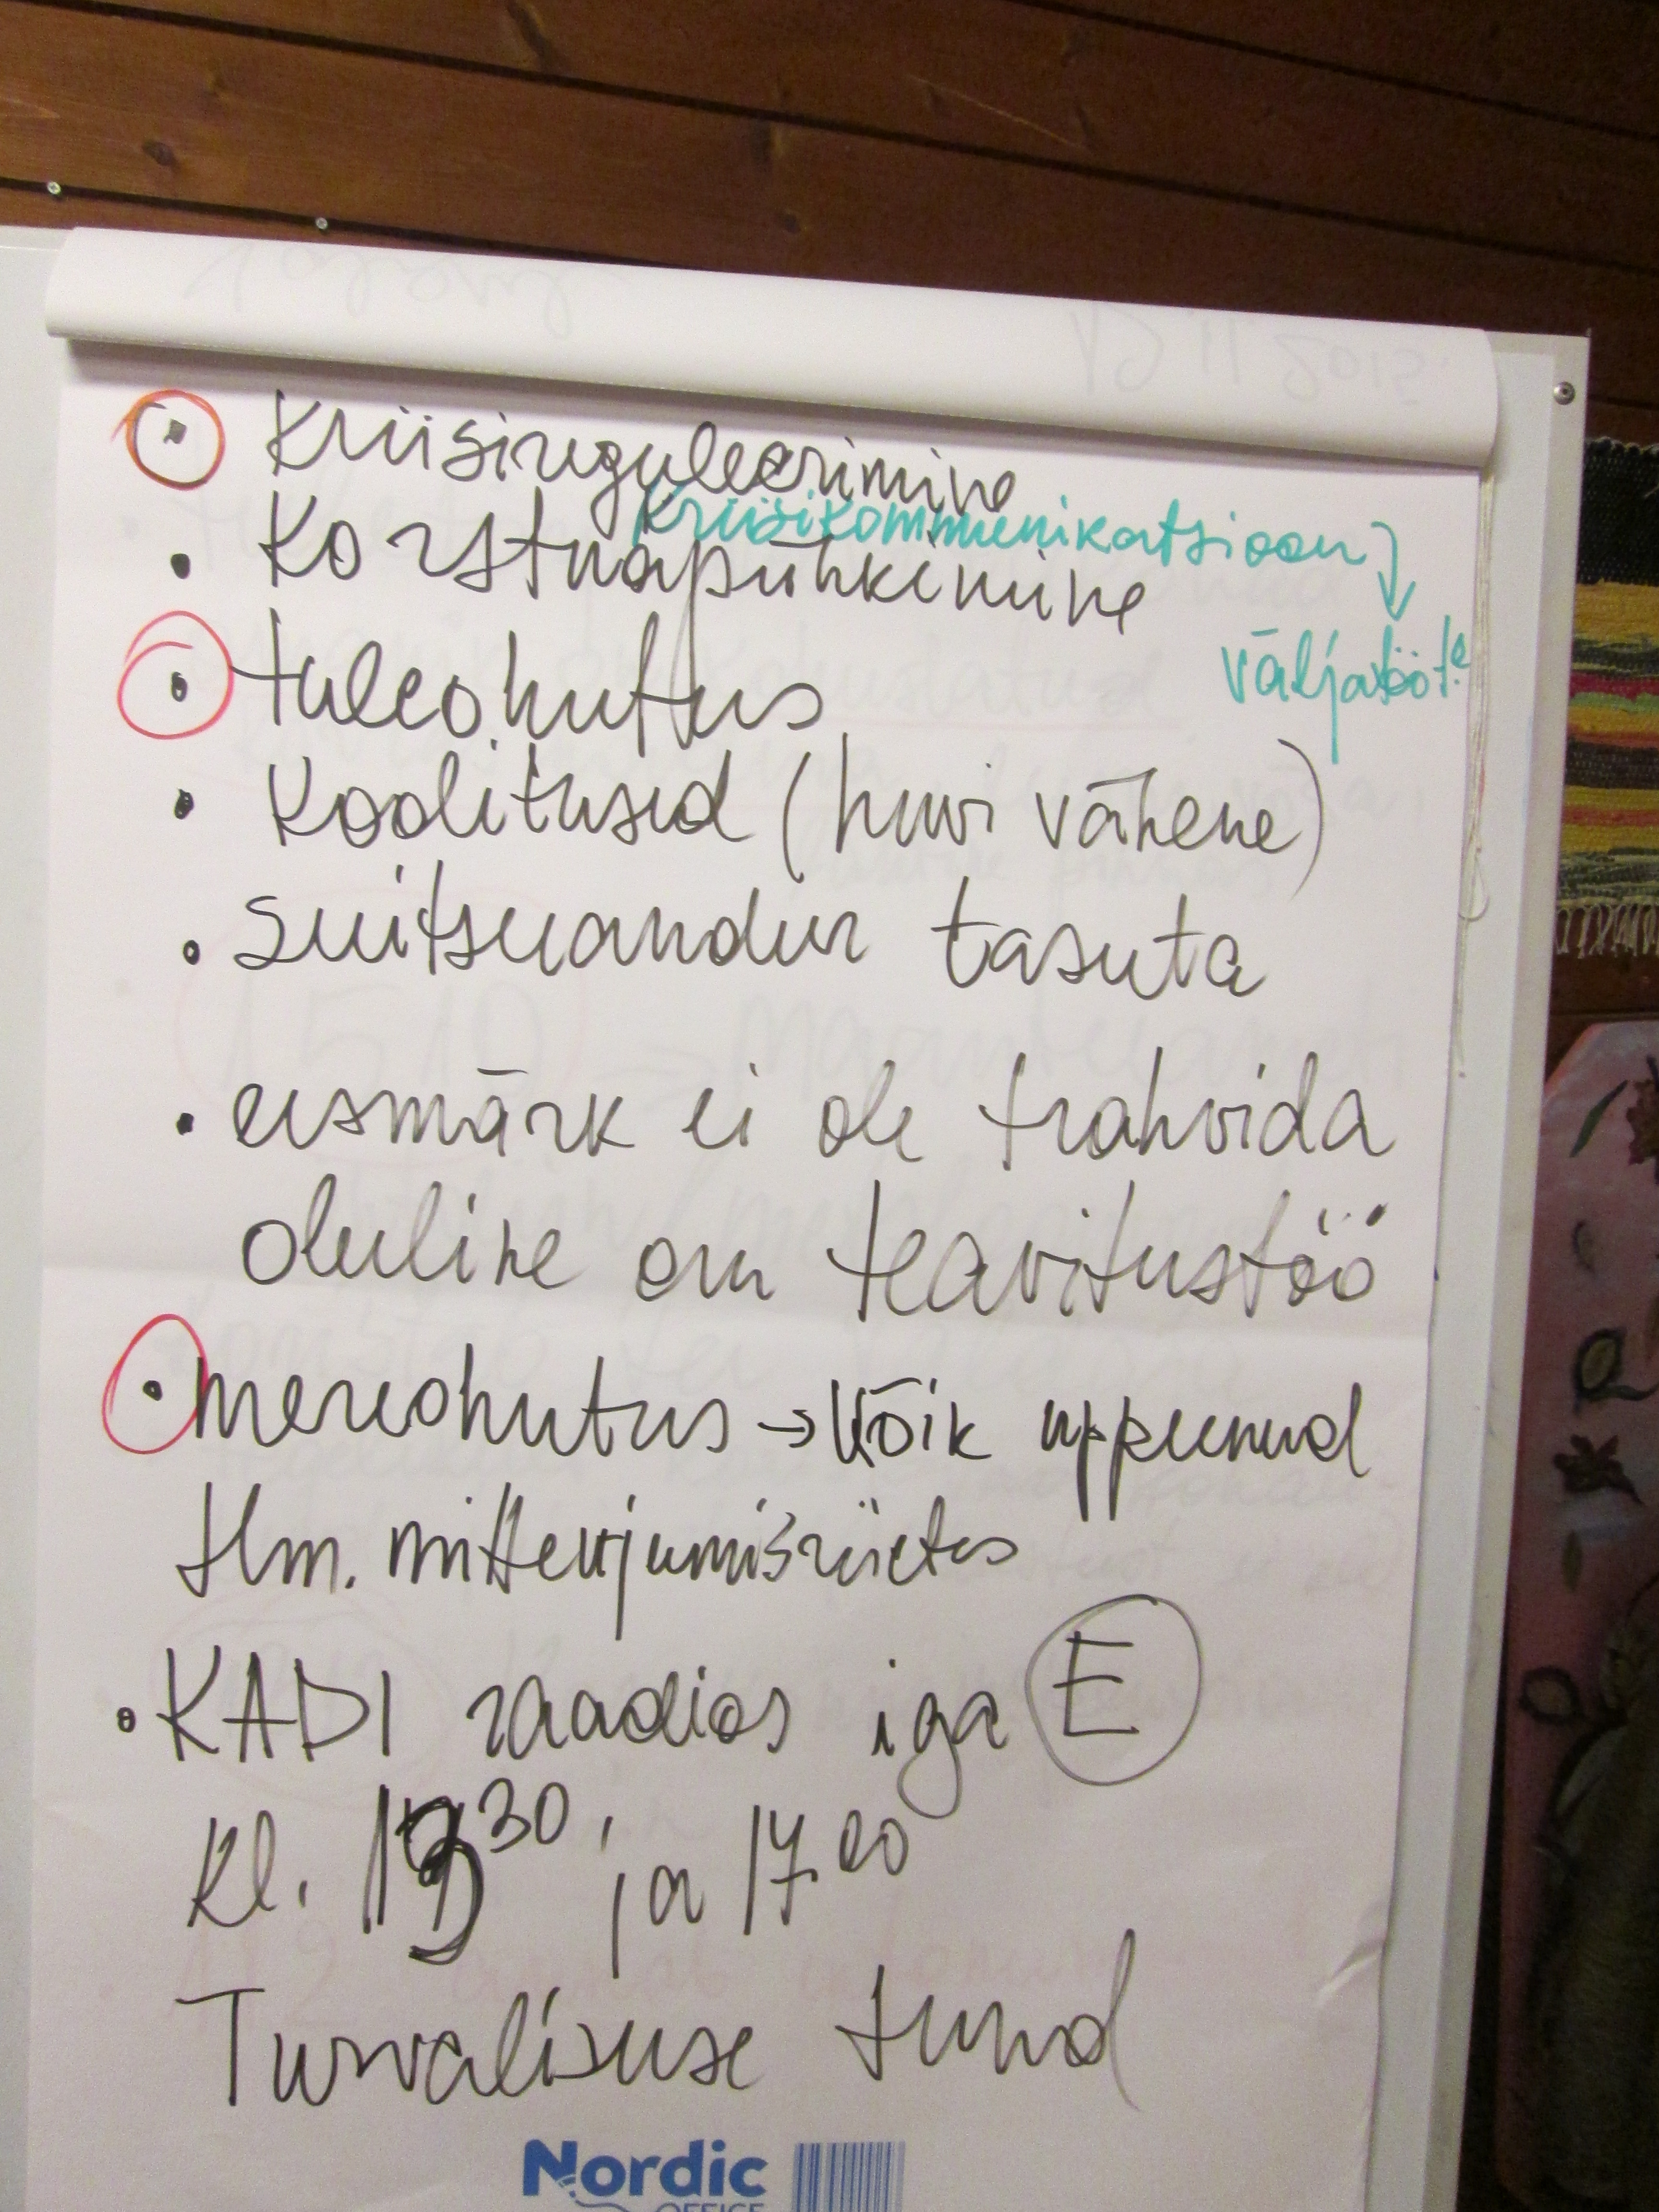 • Kriisireguleerimine
Kriisikommunikatsioon
• Korstnapühkimine
väljatööt.
• tuleohutus
• Koolitused (huvi vähene)
• suitsuandur tasuta
• eesmärk ei ole trahvida
oluline on teavitustöö
• mereohutus → Kõik uppunud
tlm. mitteujumisriietes
• KADI raadios iga E
Kl. 30 ja 17 00
Turvalisuse tund
Nordic
OFFICE